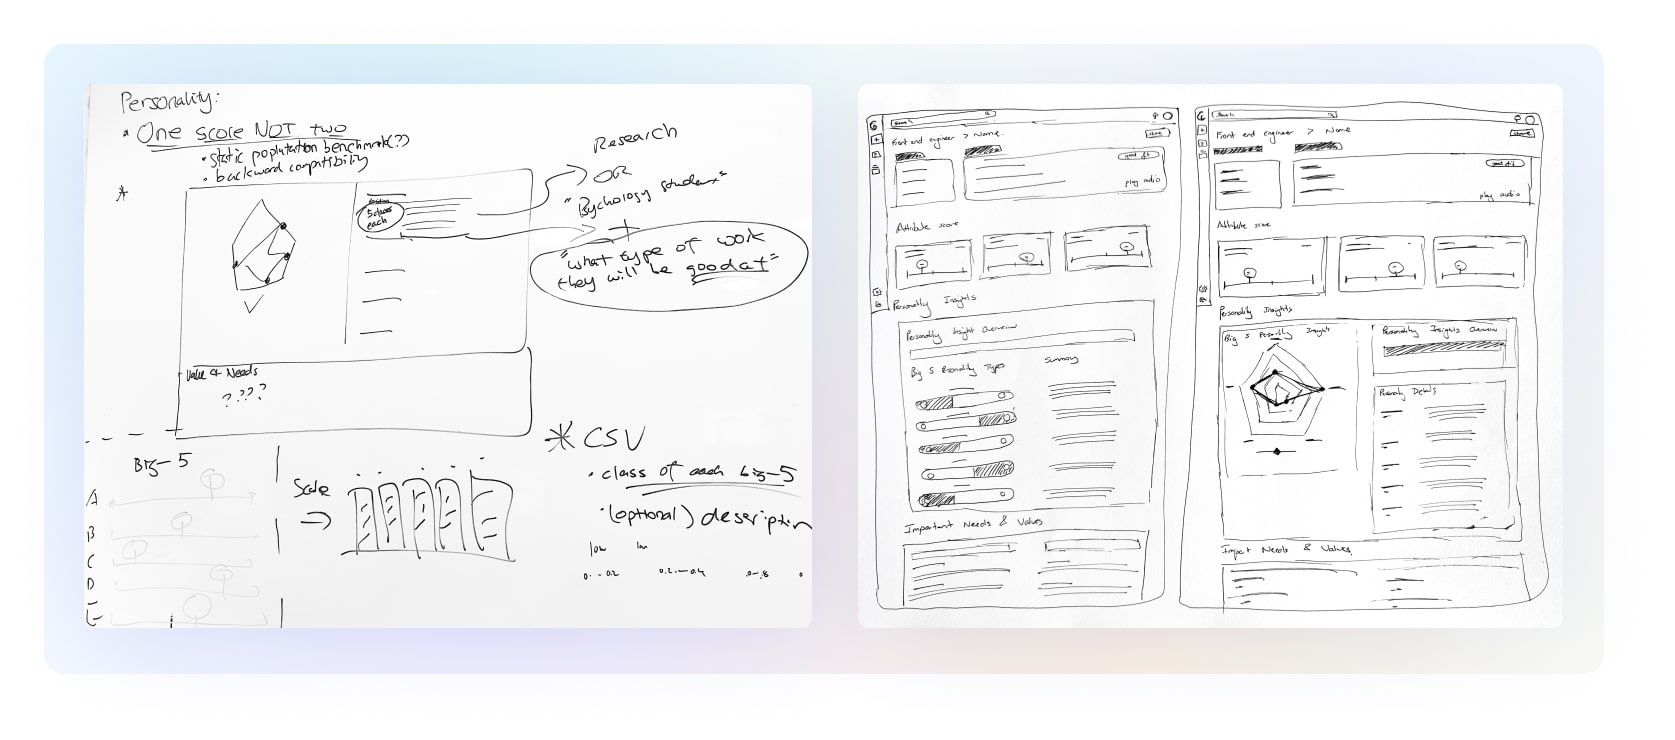 Personality:
* One score NOT two
• static population benchmark(??)
• backward compatibility
*
5 classes
each
Research
OR
"Psychology students"
+
"what type of work
they will be good at"
Value & Needs
????
Big-5
A
B
C
D
E
Scale
* CSV
• class of each big-5
• (optional) description
low
0.-0.2
0.2-0.4
Search
Front end engineer > Name.
share
good fit
play audio
Attribute score
Personality Insights
Personality Insight Overview
Big 5 Personality Types
Summary
Important Needs & Values
Search
Front end engineer > Name
share
good fit
play audio
Attribute score
Personality Insights
Big 5 Personality Insight
Personality Insights Overview
Personality Details
Import Needs & Values